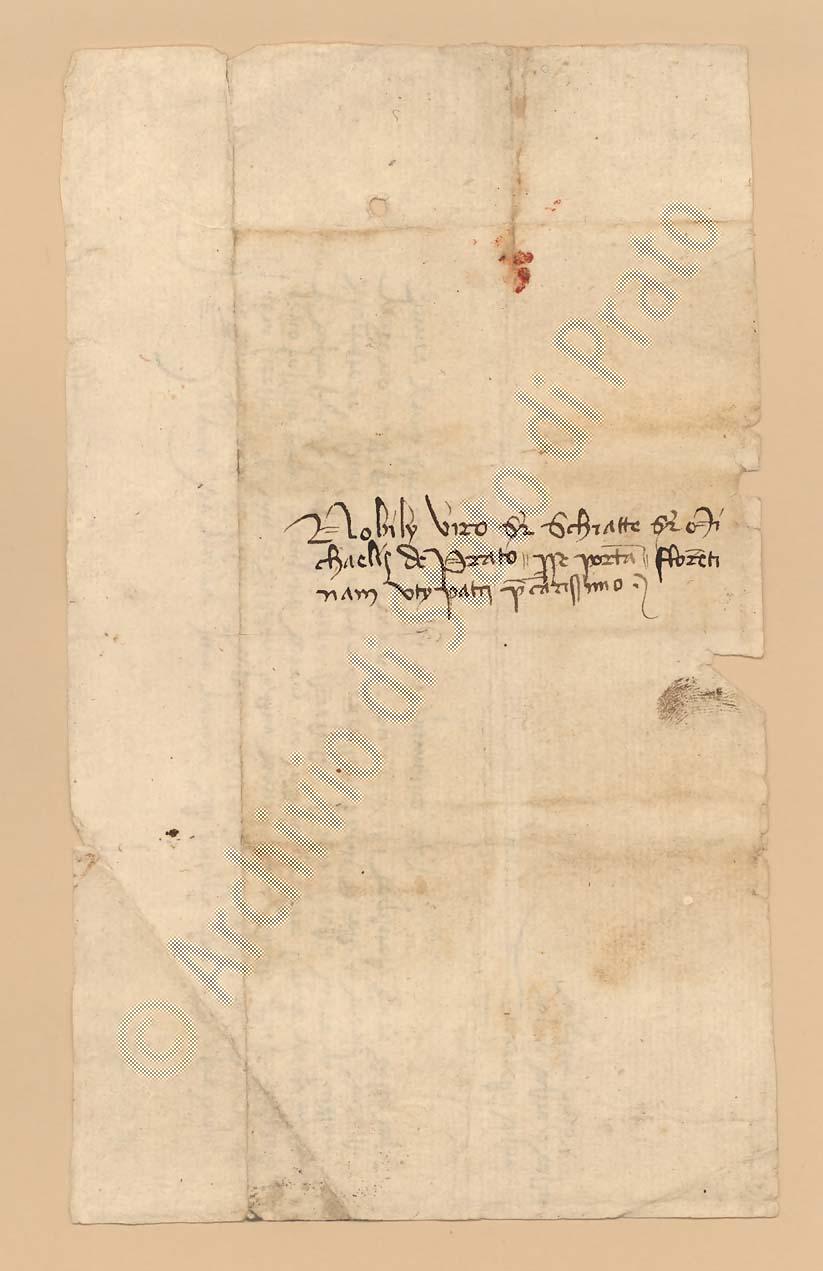 Nobily viro Sr Schiatte Sr Mi
chaelis de Prato porta florēti
nam uty patri p̄carissimo
© Archivio di Stato di Prato